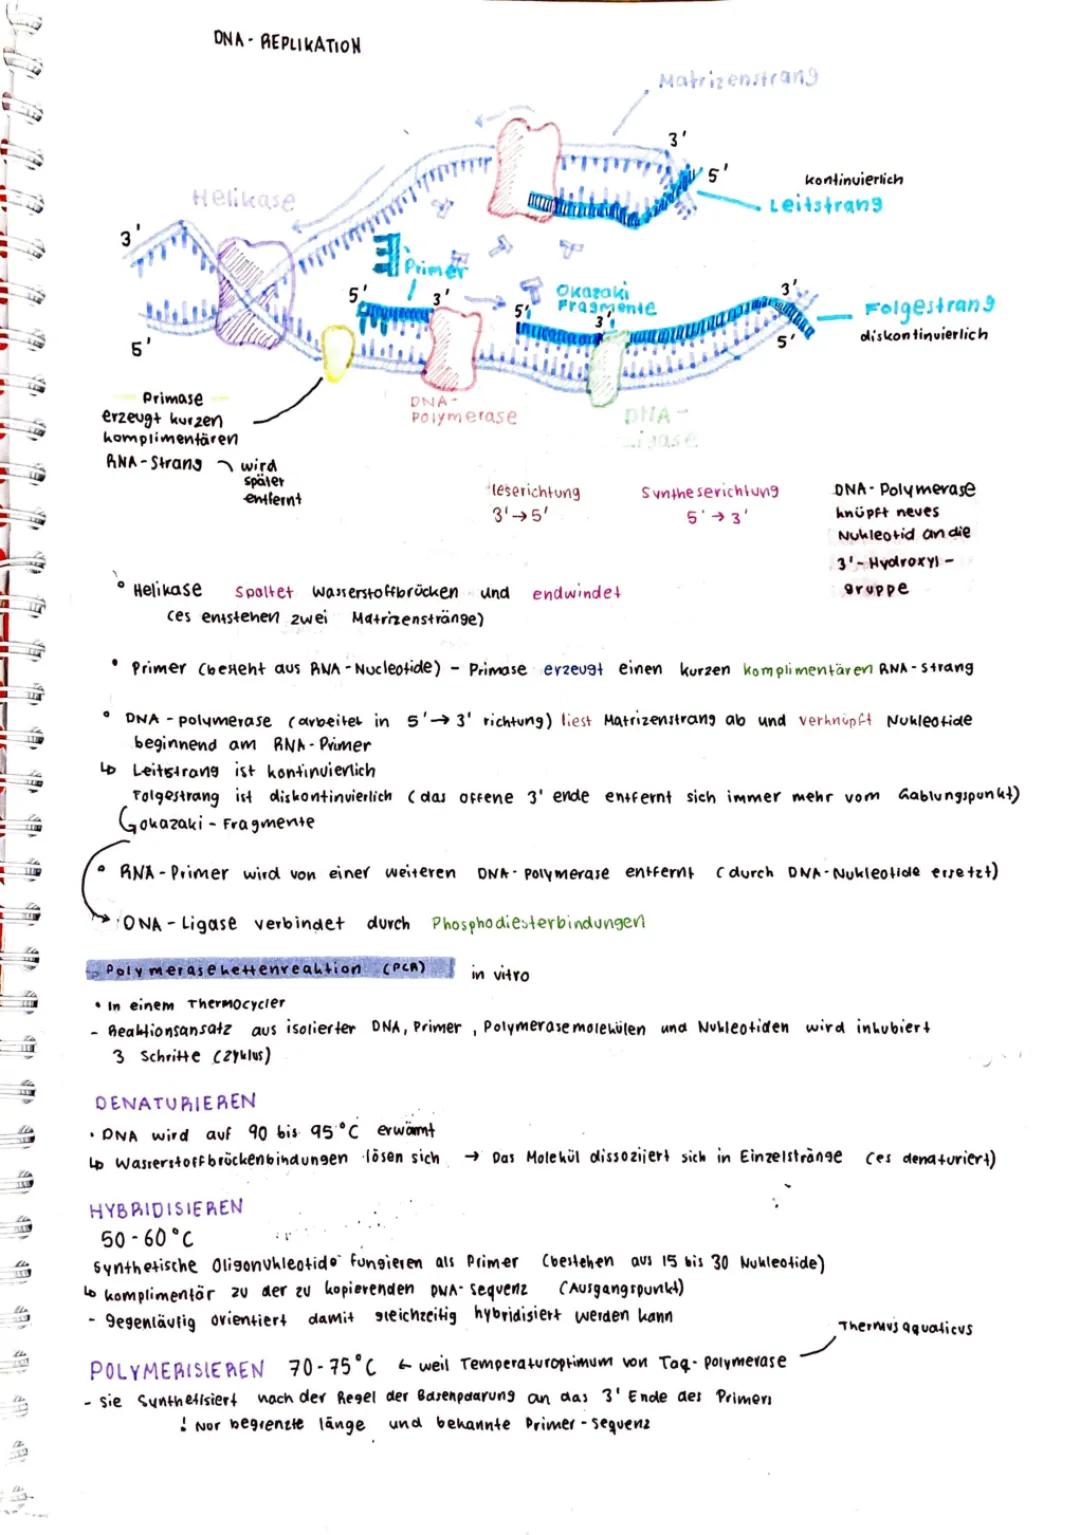 DNA - REPLIKATION
Matrizenstrang
3'
5'
kontinuierlich
Leitstrang
Helikase
3'
Primer
5'
3'
Okazaki
Fragmente
5'
3'
3'
Folgestrang
5'
diskontinuierlich
5'
Primase
erzeugt kurzen
komplimentären
RNA-Strang wird
später
entfernt
DNA-
Polymerase
DNA-
Ligase
leserichtung
3'→5'
Syntheserichtung
5'→3'
DNA-Polymerase
knüpft neues
Nukleotid an die
3'-Hydroxyl-
gruppe
° Helikase spaltet Wasserstoffbrücken und endwindet
(es entstehen zwei Matrizenstränge)
• Primer (besteht aus RNA-Nucleotide) - Primase erzeugt einen kurzen komplimentären RNA-Strang
° DNA-polymerase (arbeitet in 5'→3' richtung) liest Matrizenstrang ab und verknüpft Nukleotide
beginnend am RNA-Primer
↳ Leitstrang ist kontinuierlich
Folgestrang ist diskontinuierlich (das offene 3' ende entfernt sich immer mehr vom Gablungspunkt)
↳ okazaki-Fragmente
° RNA-Primer wird von einer weiteren DNA-Polymerase entfernt (durch DNA-Nukleotide ersetzt)
→ DNA-Ligase verbindet durch Phosphodiesterbindungen
Polymerasekettenreaktion (PCR) in vitro
• In einem Thermocycler
- Reaktionsansatz aus isolierter DNA, Primer, Polymerasemolekülen und Nukleotiden wird inkubiert
3 Schritte (Zyklus)
DENATURIEREN
• DNA wird auf 90 bis 95°C erwämt
↳ Wasserstoffbrückenbindungen lösen sich → Das Molekül dissoziiert sich in Einzelstränge (es denaturiert)
HYBRIDISIEREN
50-60°C
Synthetische Oligonukleotide fungieren als Primer (bestehen aus 15 bis 30 Nukleotide)
↳ komplimentär zu der zu kopierenden DNA-Sequenz (Ausgangspunkt)
- gegenläufig orientiert damit gleichzeitig hybridisiert werden kann
Thermus aquaticus
POLYMERISIEREN 70-75°C ← weil Temperaturoptimum von Taq-polymerase
- sie Synthetisiert nach der Regel der Basenpaarung an das 3' Ende des Primers
! Nur begrenzte länge und bekannte Primer-Sequenz